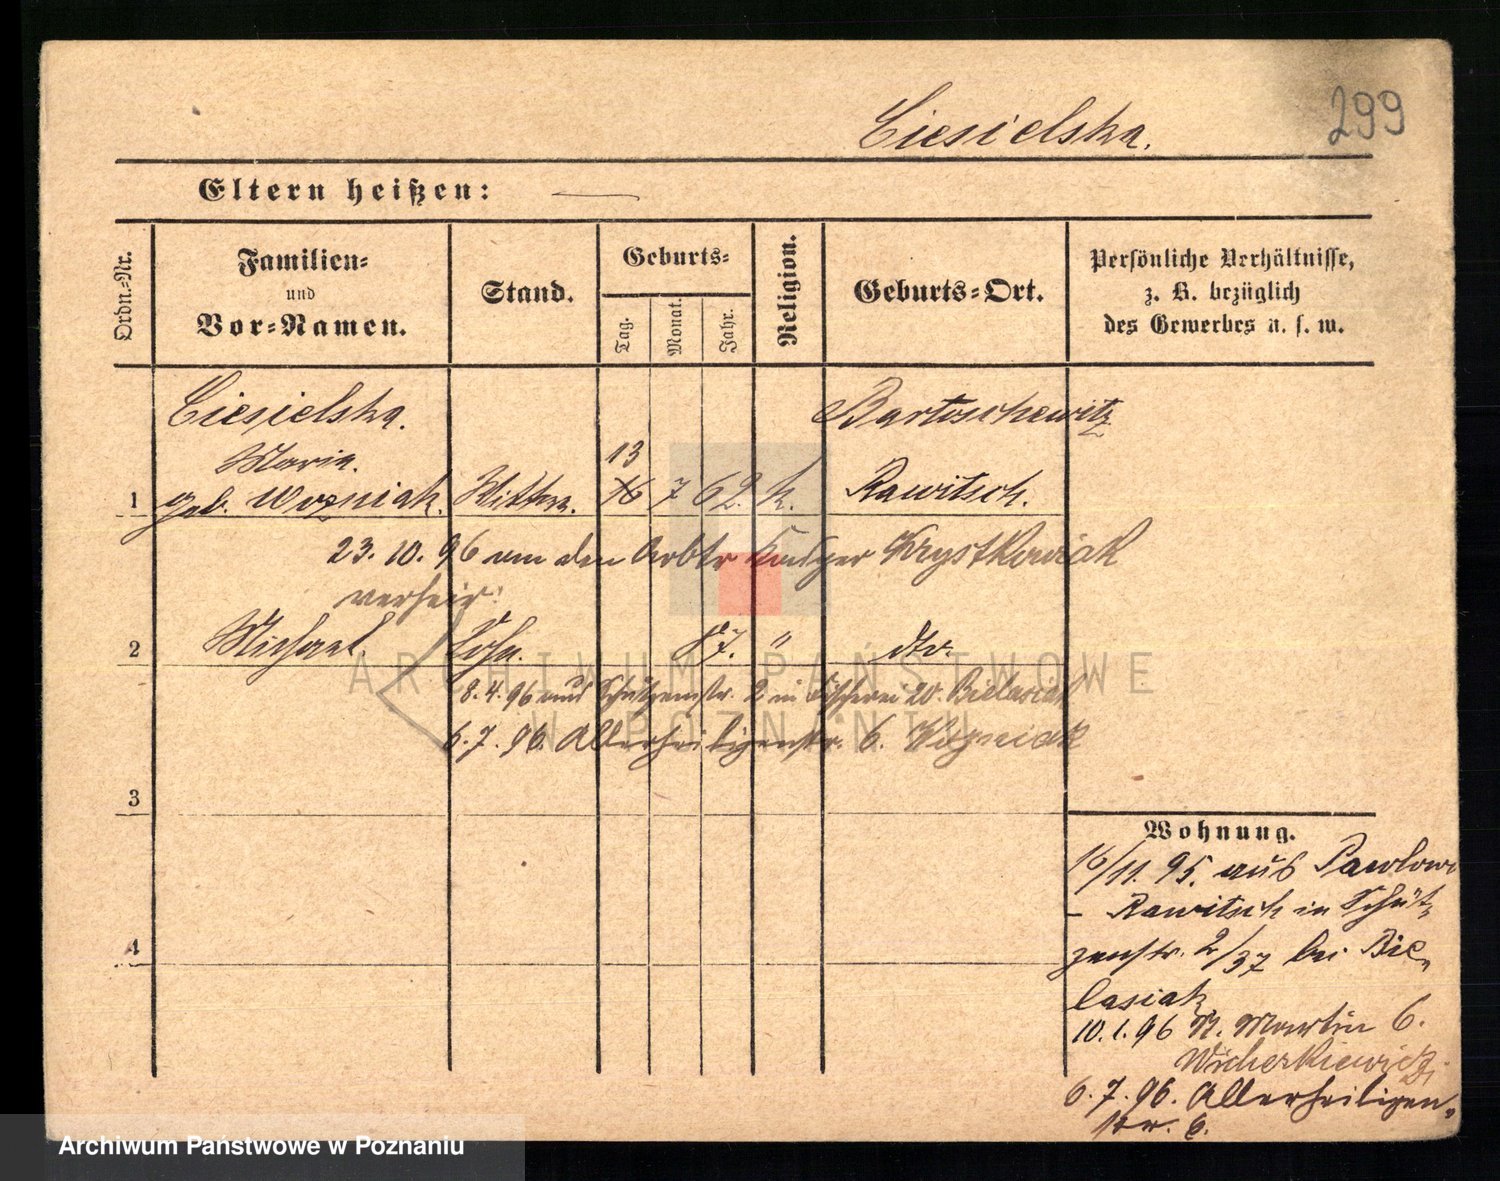 299
Ciesielska.
Eltern heißen: —
Ordn.-Nr.
Familien-
und
Vor-Namen.
Stand.
Geburts-
Tag.
Monat.
Jahr.
Religion.
Geburts-Ort.
Persönliche Verhältnisse,
z. B. bezüglich
des Gewerbes u. s. w.
Ciesielska. Bartoschewitz
Maria. 13
1 geb. Wozniak. Wittwe. 16 7 62. k. Rawitsch.
23. 10. 96 an den Arbtr Krystkowiak
verheir.
2 Michael. Sohn. 87. " dto.
8. 4. 96 aus Schützenstr. 2 in Fischerei 20. Bielasiak
6. 7. 96. Allerheiligenstr. 6. Wozniak
3
4
Wohnung.
16/11. 95. aus Pawlowo
– Rawitsch in Schüt-
zenstr. 2/37 bei Bie-
lasiak
10. 1. 96 St. Martin 6.
Wicherkiewicz.
6. 7. 96. Allerheiligen-
str. 6.
ARCHIWUM PAŃSTWOWE
W POZNANIU
Archiwum Państwowe w Poznaniu